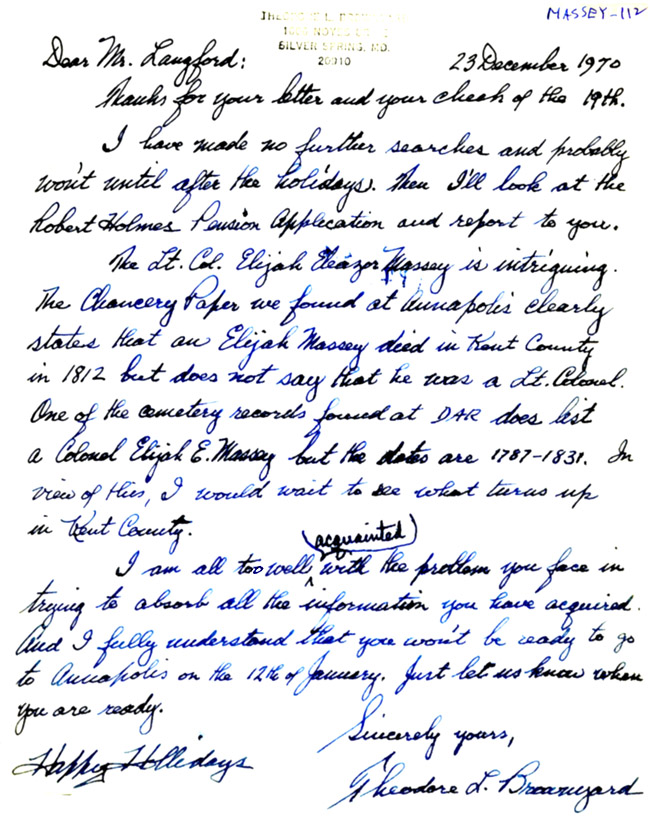 MASSEY-112
SILVER SPRING, MD.
20910
Dear Mr. Langford:
23 December 1970
Thanks for your letter and your check of the 19th.
I have made no further searches and probably
won't until after the holidays. Then I'll look at the
Robert Holmes Pension Application and report to you.
The Lt. Col. Elijah Eleazor Massey is intriguing.
The Chancery Paper we found at Annapolis clearly
states that an Elijah Massey died in Kent County
in 1812 but does not say that he was a Lt. Colonel.
One of the cemetery records found at DAR does list
a Colonel Elijah E. Massey but the dates are 1787-1831. In
view of this, I would wait to see what turns up
in Kent County.
(acquainted)
I am all too well ^ with the problem you face in
trying to absorb all the information you have acquired.
And I fully understand that you won't be ready to go
to Annapolis on the 12th of January. Just let us know when
you are ready.
Sincerely yours,
Happy Hollidays
Theodore L.